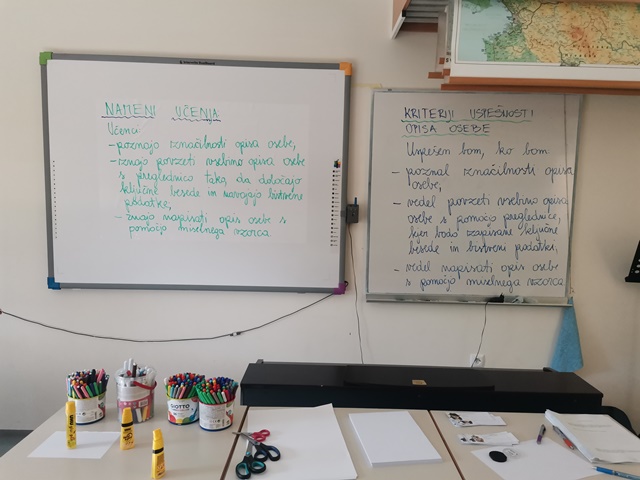 NAMENI UČENJA
Učenci:
- poznajo značilnosti opisa osebe,
- znajo povzeti vsebino opisa osebe
s preglednico tako, da določajo
ključne besede in navajajo bistvene
podatke,
- znajo napisati opis osebe s
pomočjo miselnega vzorca.
KRITERIJI USPEŠNOSTI
OPISA OSEBE
Uspešen bom, ko bom:
- poznal značilnosti opisa
osebe,
- vedel povzeti vsebino opisa
osebe s pomočjo preglednice,
kjer bodo zapisane ključne
besede in bistveni podatki,
- vedel napisati opis osebe
s pomočjo miselnega vzorca.
GIOTTO